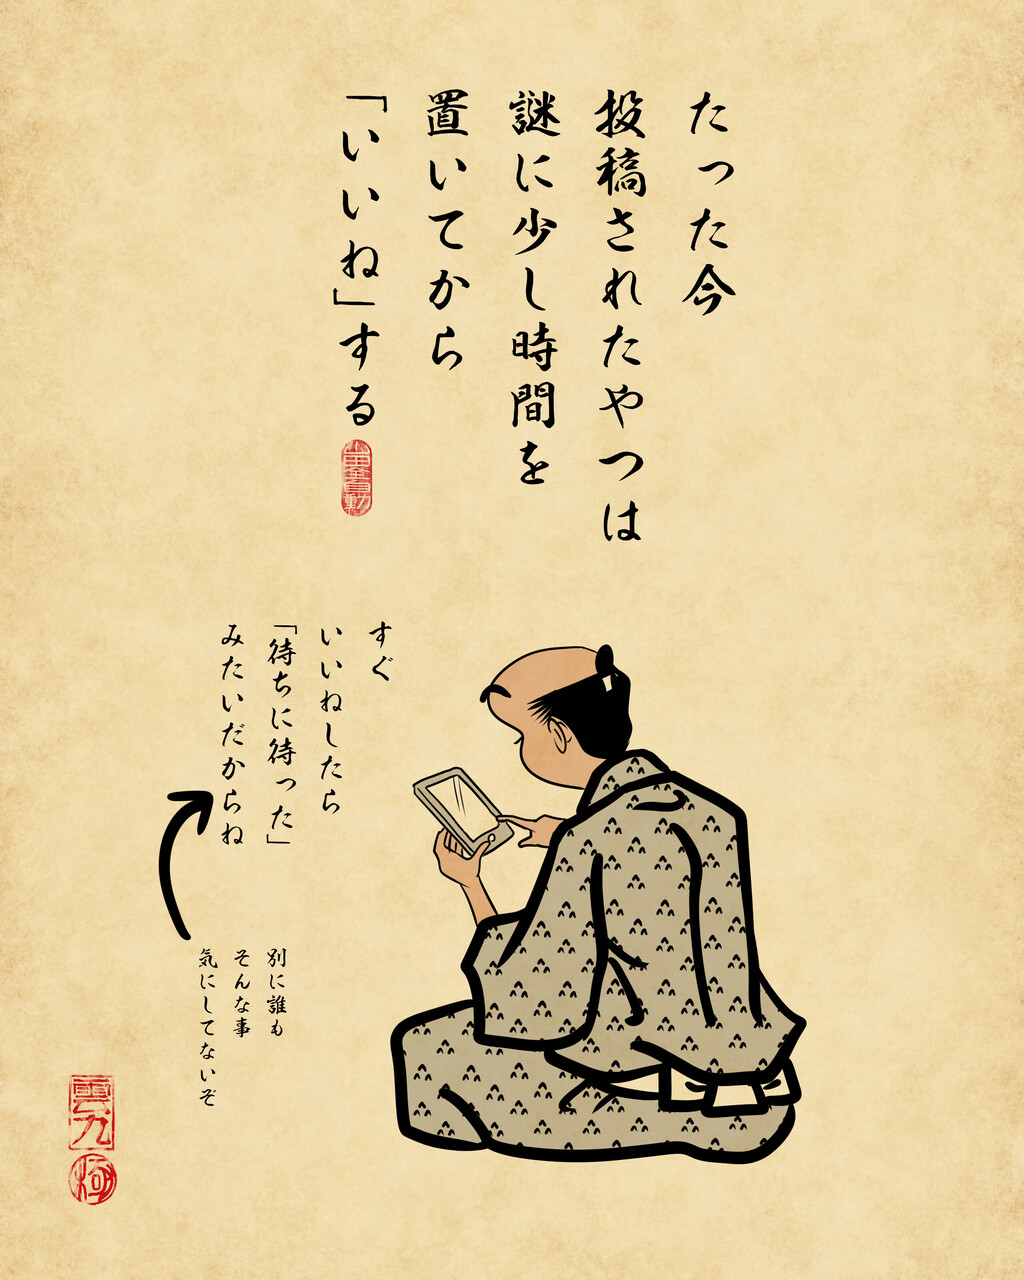 たった今
投稿されたやつは
謎に少し時間を
置いてから
「いいね」する
すぐ
いいねしたら
「待ちに待った」
みたいだからね
別に誰も
そんな事
気にしてないぞ